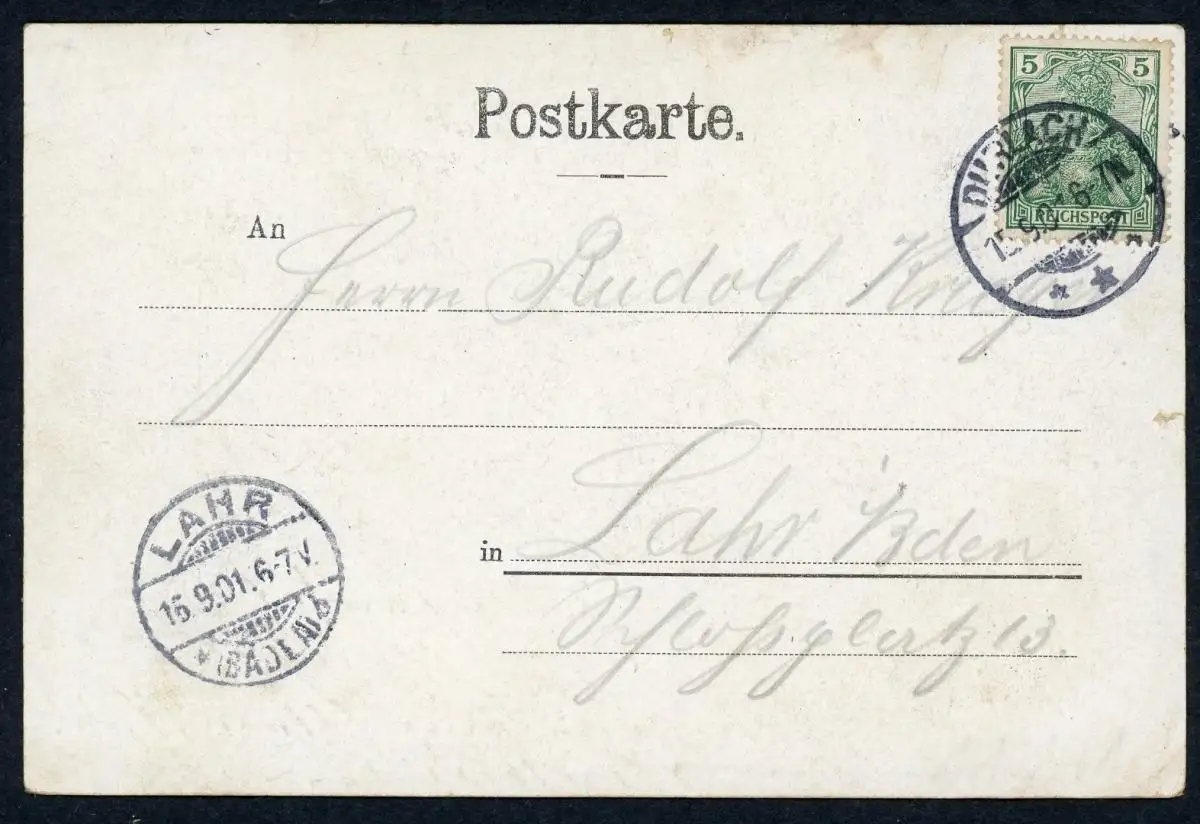 Postkarte.
5 5
DURLACH
15.9.01. 6-7N
REICHSPOST
An
Herrn Rudolf
in Lahr Bden
Schloßplatz 13.
LAHR
16.9.01. 6-7V.
(BADEN)